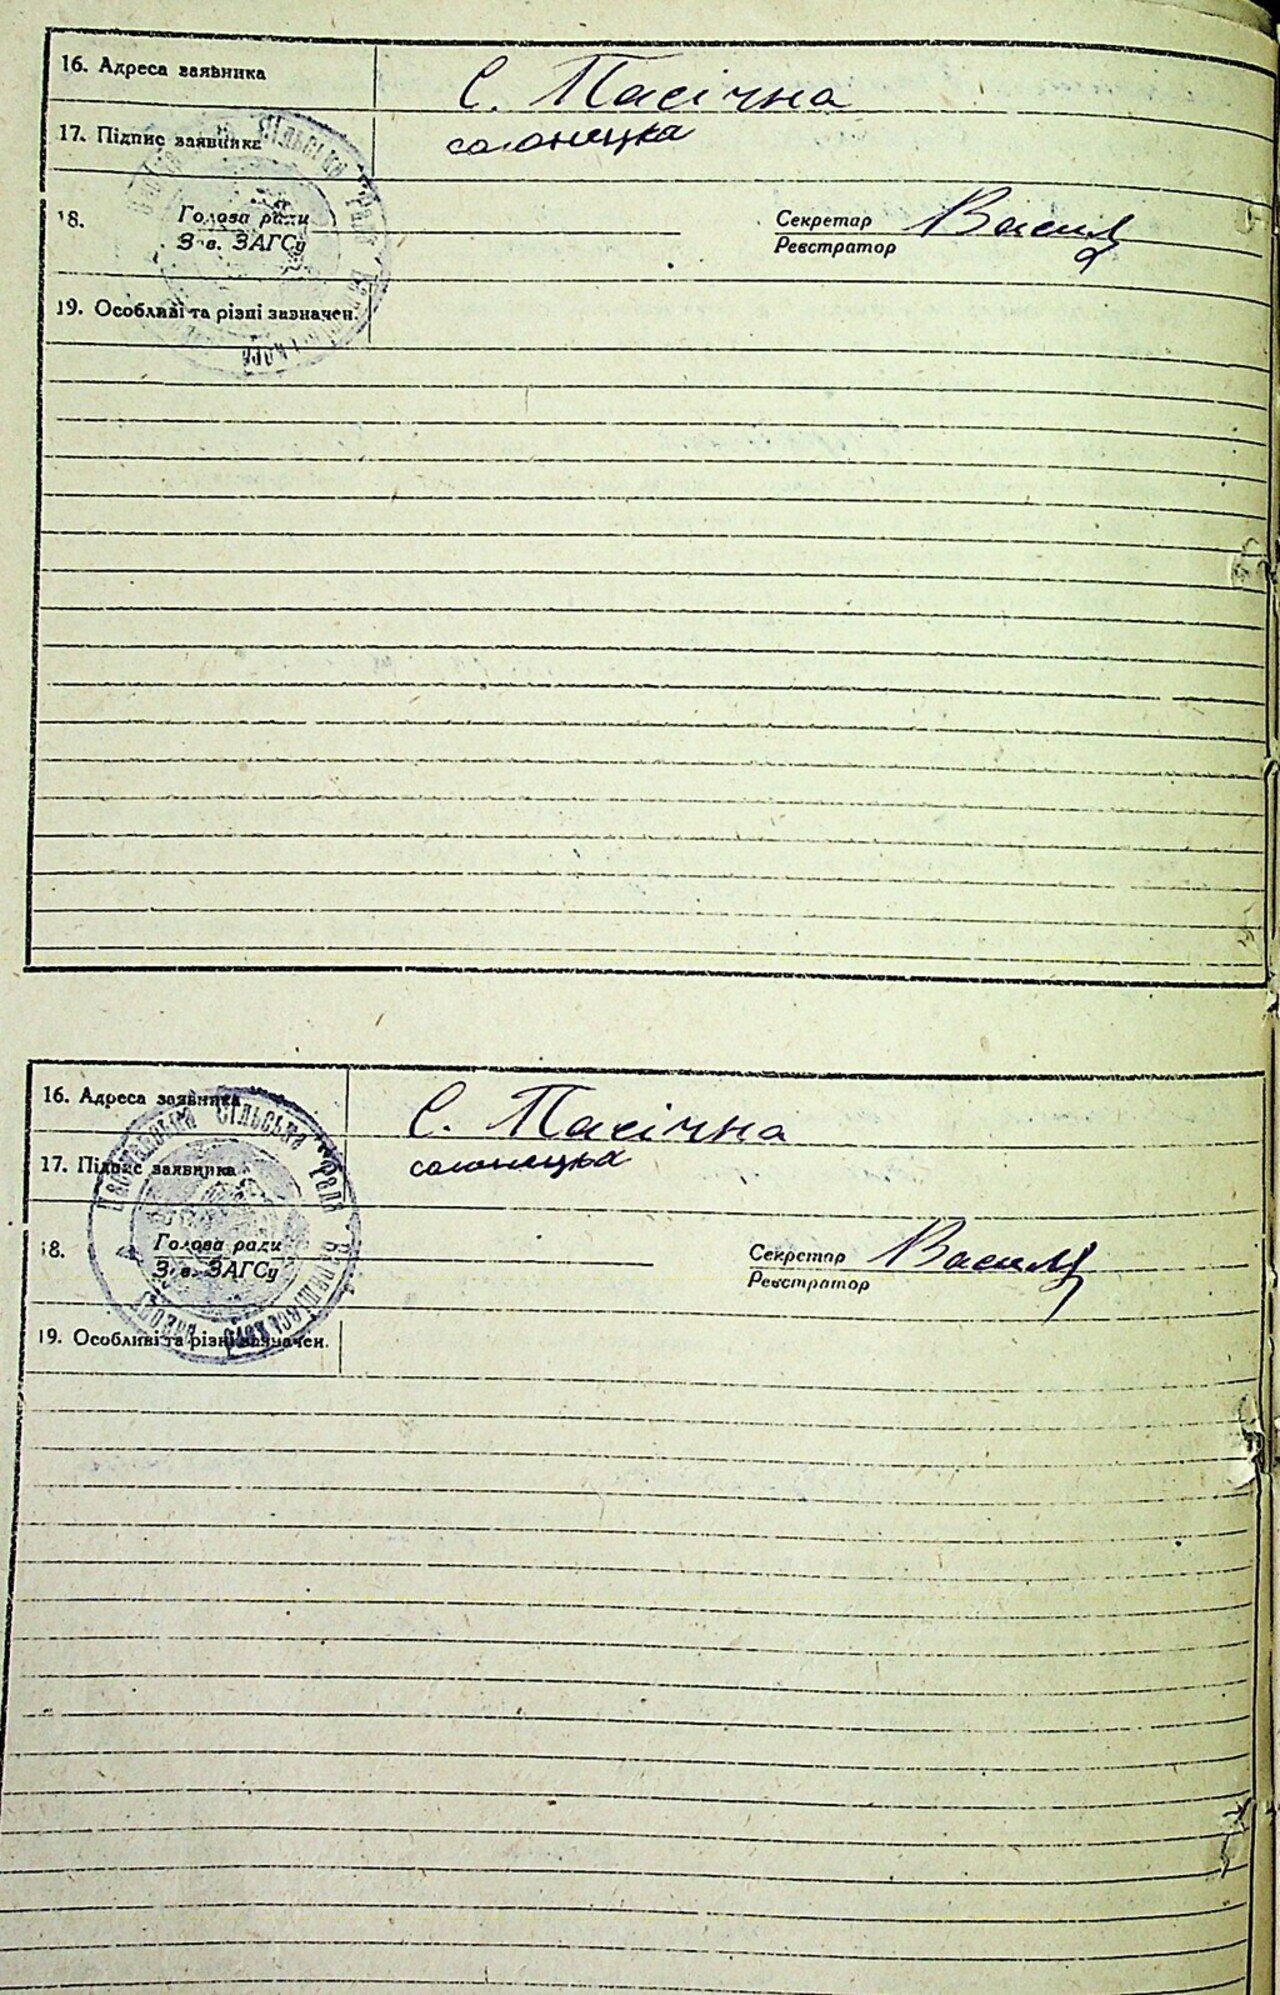 16. Адреса заявника С. Пасічна
17. Підпис заявника солонецька
18. Голова ради
Зав. ЗАГСу
Секретар Васил
Реєстратор
19. Особливі та різні зазначен.
СІЛЬСЬКА РАДА
16. Адреса заявника С. Пасічна
17. Підпис заявника солонецька
18. Голова ради
Зав. ЗАГСу
Секретар Васил
Реєстратор
19. Особливі та різні зазначен.
СІЛЬСЬКА РАДА